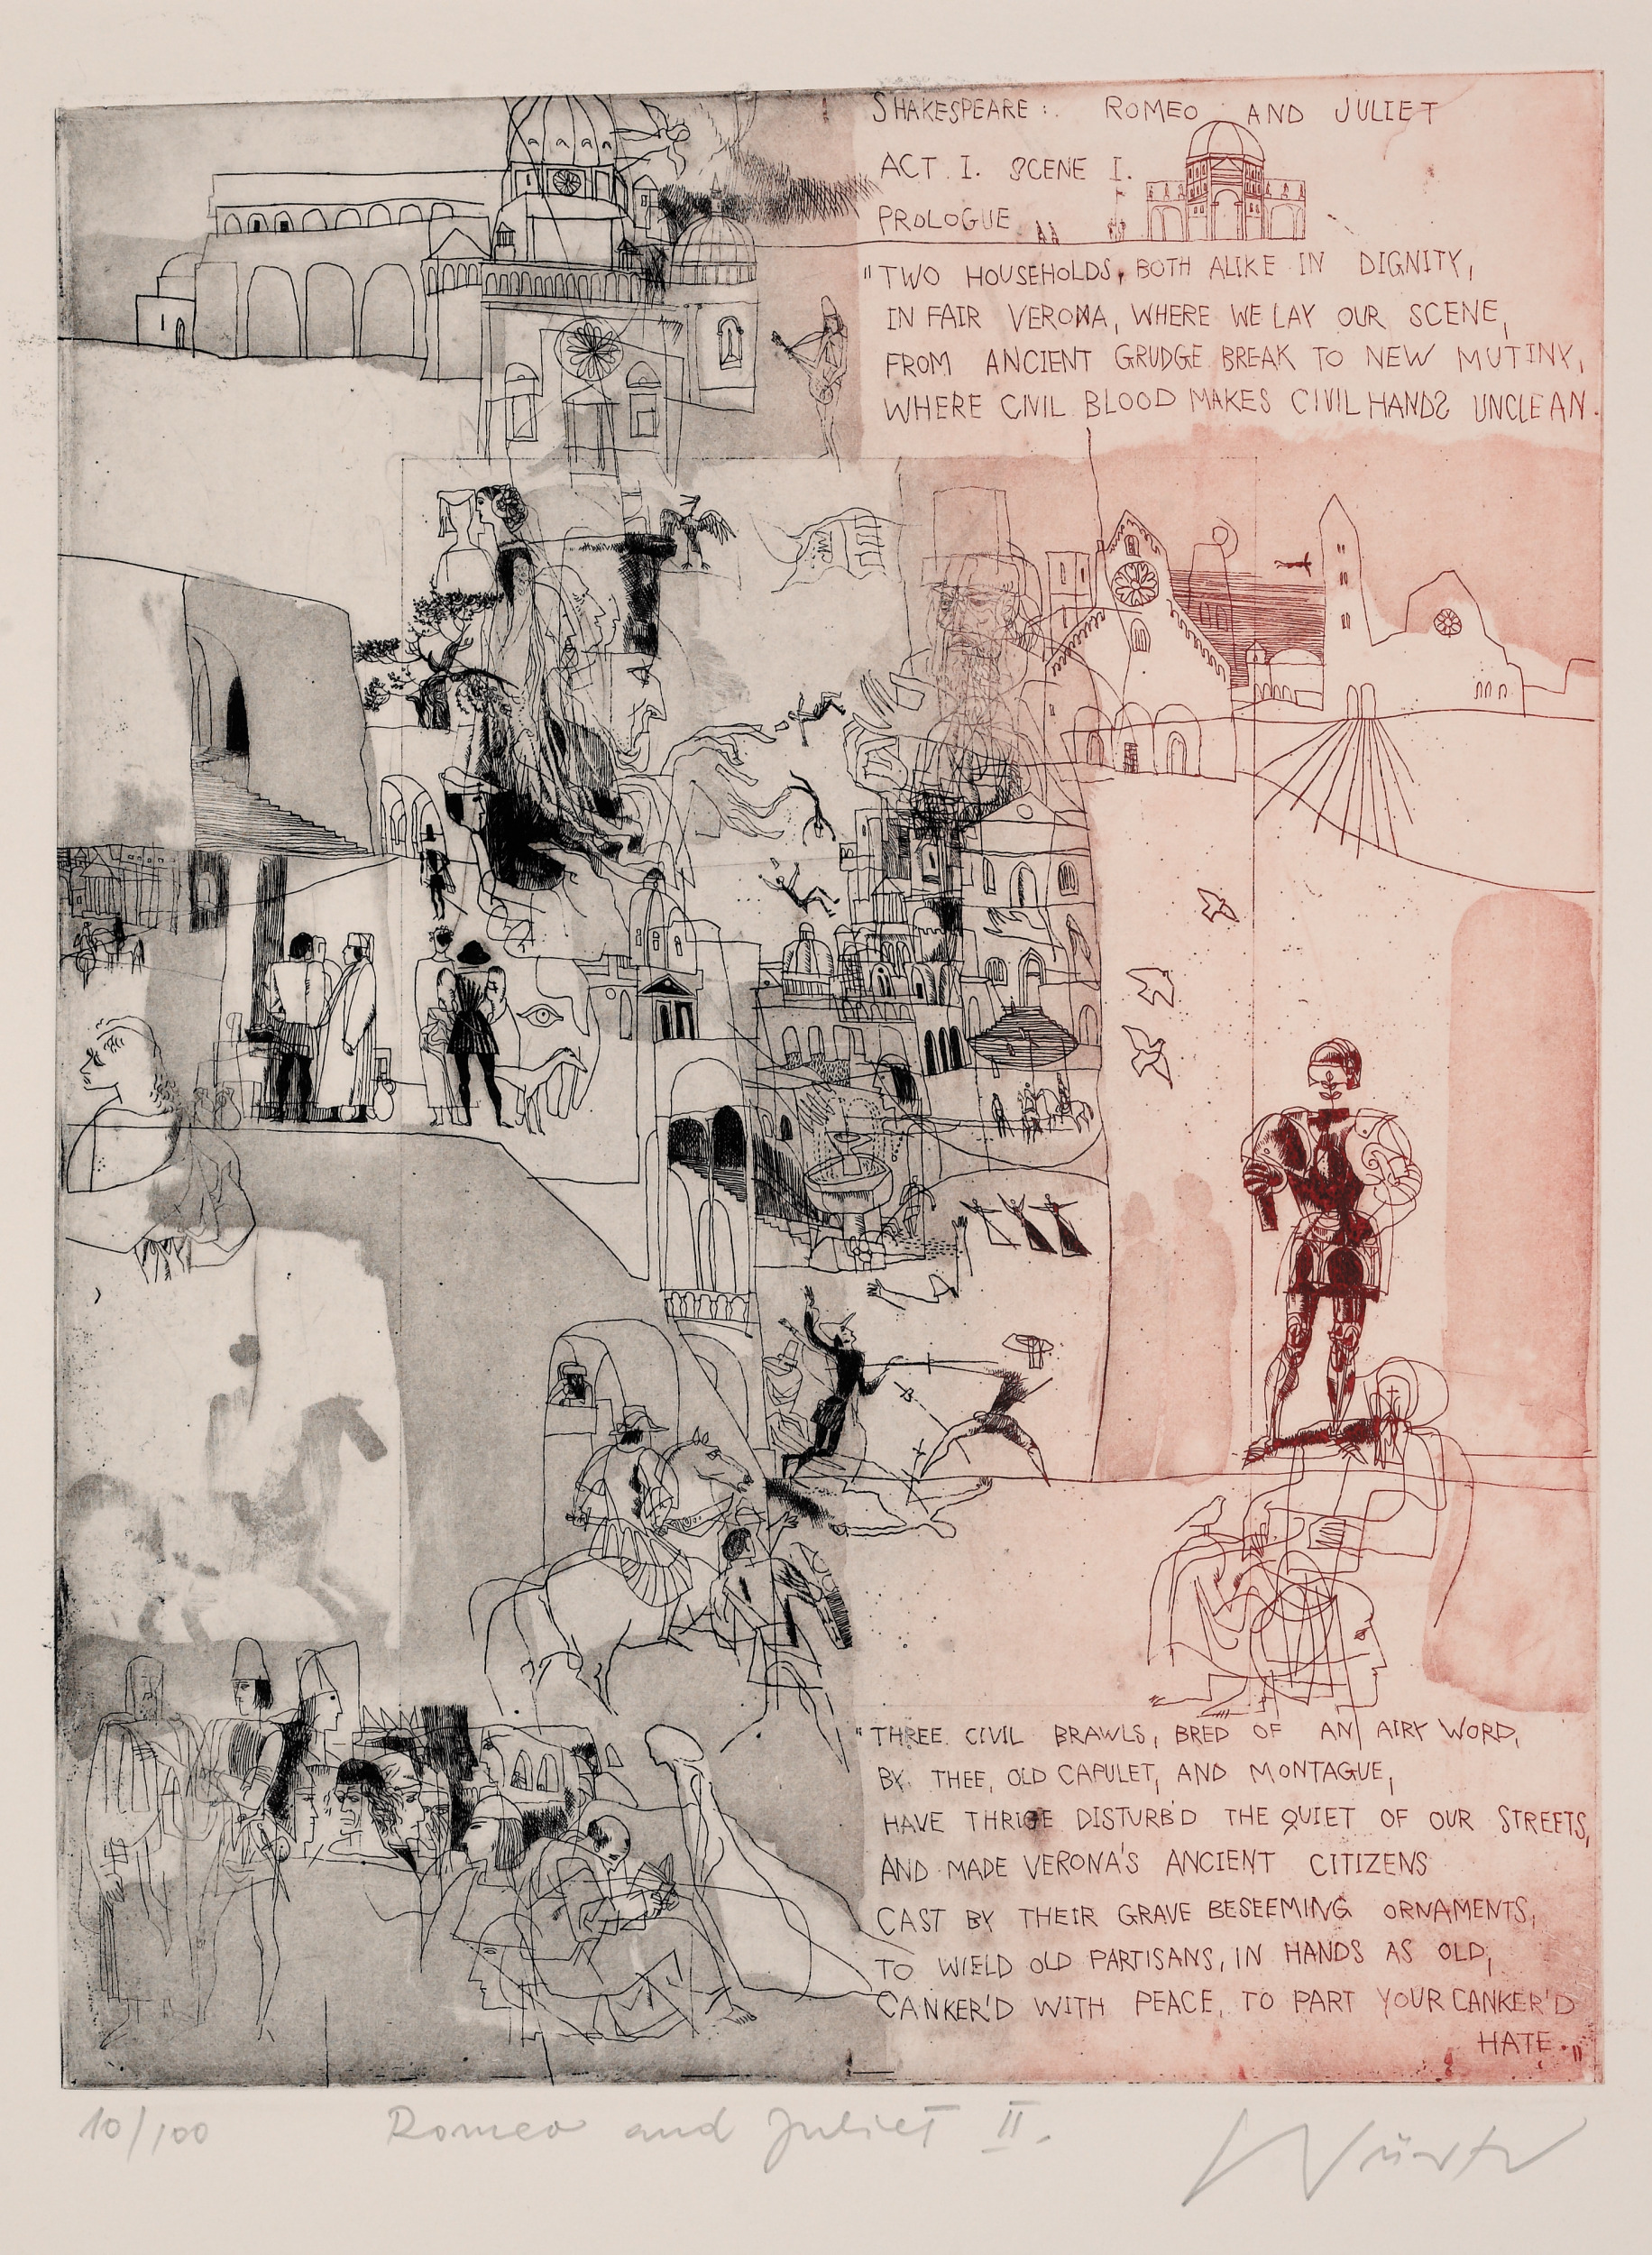 SHAKESPEARE: ROMEO AND JULIET
ACT. I. SCENE I.
PROLOGUE
"TWO HOUSEHOLDS, BOTH ALIKE IN DIGNITY,
IN FAIR VERONA, WHERE WE LAY OUR SCENE,
FROM ANCIENT GRUDGE BREAK TO NEW MUTINY,
WHERE CIVIL BLOOD MAKES CIVIL HANDS UNCLEAN.
"THREE CIVIL BRAWLS, BRED OF AN AIRY WORD,
BY THEE, OLD CAPULET, AND MONTAGUE,
HAVE THRICE DISTURB'D THE QUIET OF OUR STREETS,
AND MADE VERONA'S ANCIENT CITIZENS
CAST BY THEIR GRAVE BESEEMING ORNAMENTS,
TO WIELD OLD PARTISANS, IN HANDS AS OLD,
CANKER'D WITH PEACE, TO PART YOUR CANKER'D
HATE."
10/100 Romeo and Juliet II. Würtz